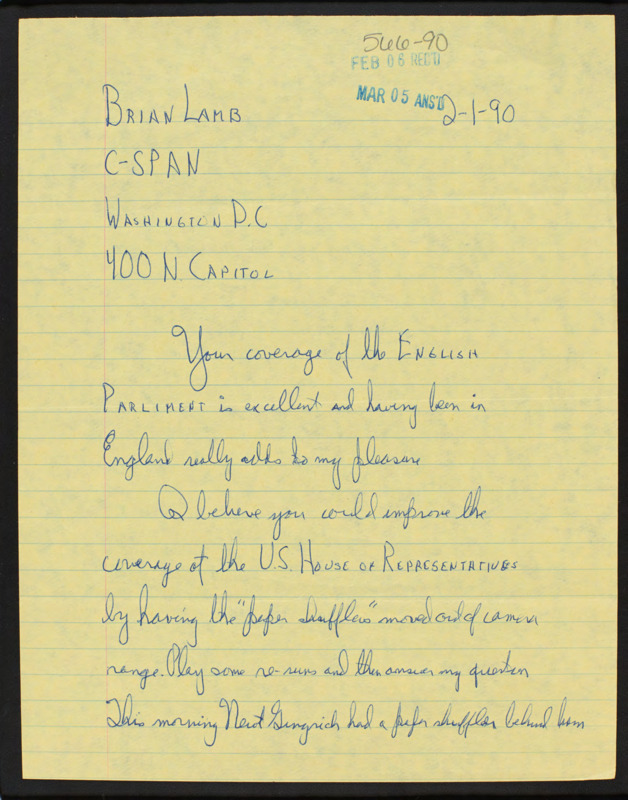 566-90
FEB 06 REC'D
MAR 05 ANS'D
2-1-90
BRIAN LAMB
C-SPAN
WASHINGTON D.C
400 N CAPITOL
Your coverage of the ENGLISH
PARLIMENT is excellent and having been in
England really adds to my pleasure
I believe you could improve the
coverage of the U.S. HOUSE OF REPRESENTATIVES
by having the "paper shufflers" moved out of camera
range. Play some re-runs and then answer my question
This morning Newt Gingrich had a paper shuffler behind him